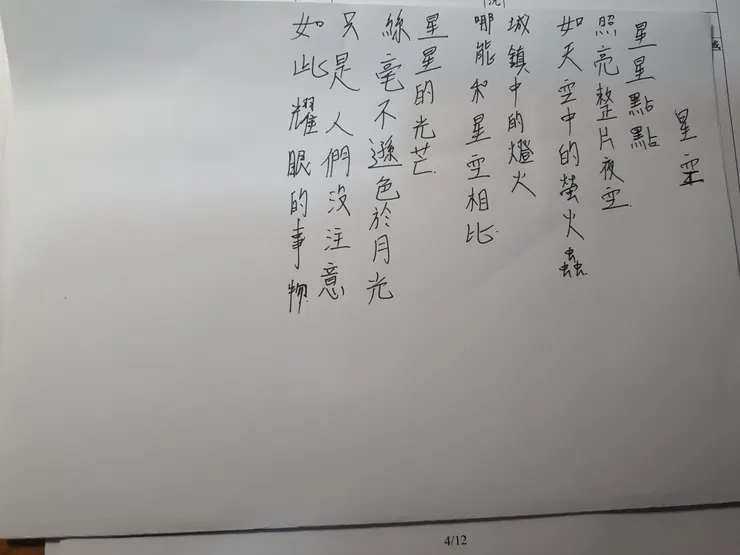 星空
星星點點
照亮整片夜空
如天空中的螢火蟲
城鎮中的燈火
哪能和星空相比
星星的光芒
絲毫不遜色於月光
只是人們沒注意
如此耀眼的事物
4/12